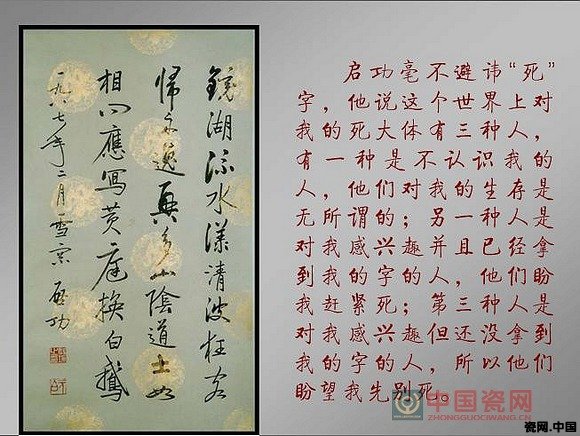 鏡湖流水漾清波狂客
歸舟逸興多山陰道士如
相見應寫黃庭換白鵝
一九八七年二月雪 啟功
启功毫不避讳“死”
字，他说这个世界上对
我的死大体有三种人，
有一种是不认识我的
人，他们对我的生存是
无所谓的；另一种人是
对我感兴趣并且已经拿
到我的字的人，他们盼
我赶紧死；第三种人是
对我感兴趣但还没拿到
我的字的人，所以他们
盼望我先别死。
中国瓷网
ZHONGGUOCIWANG.CN
瓷网.中国